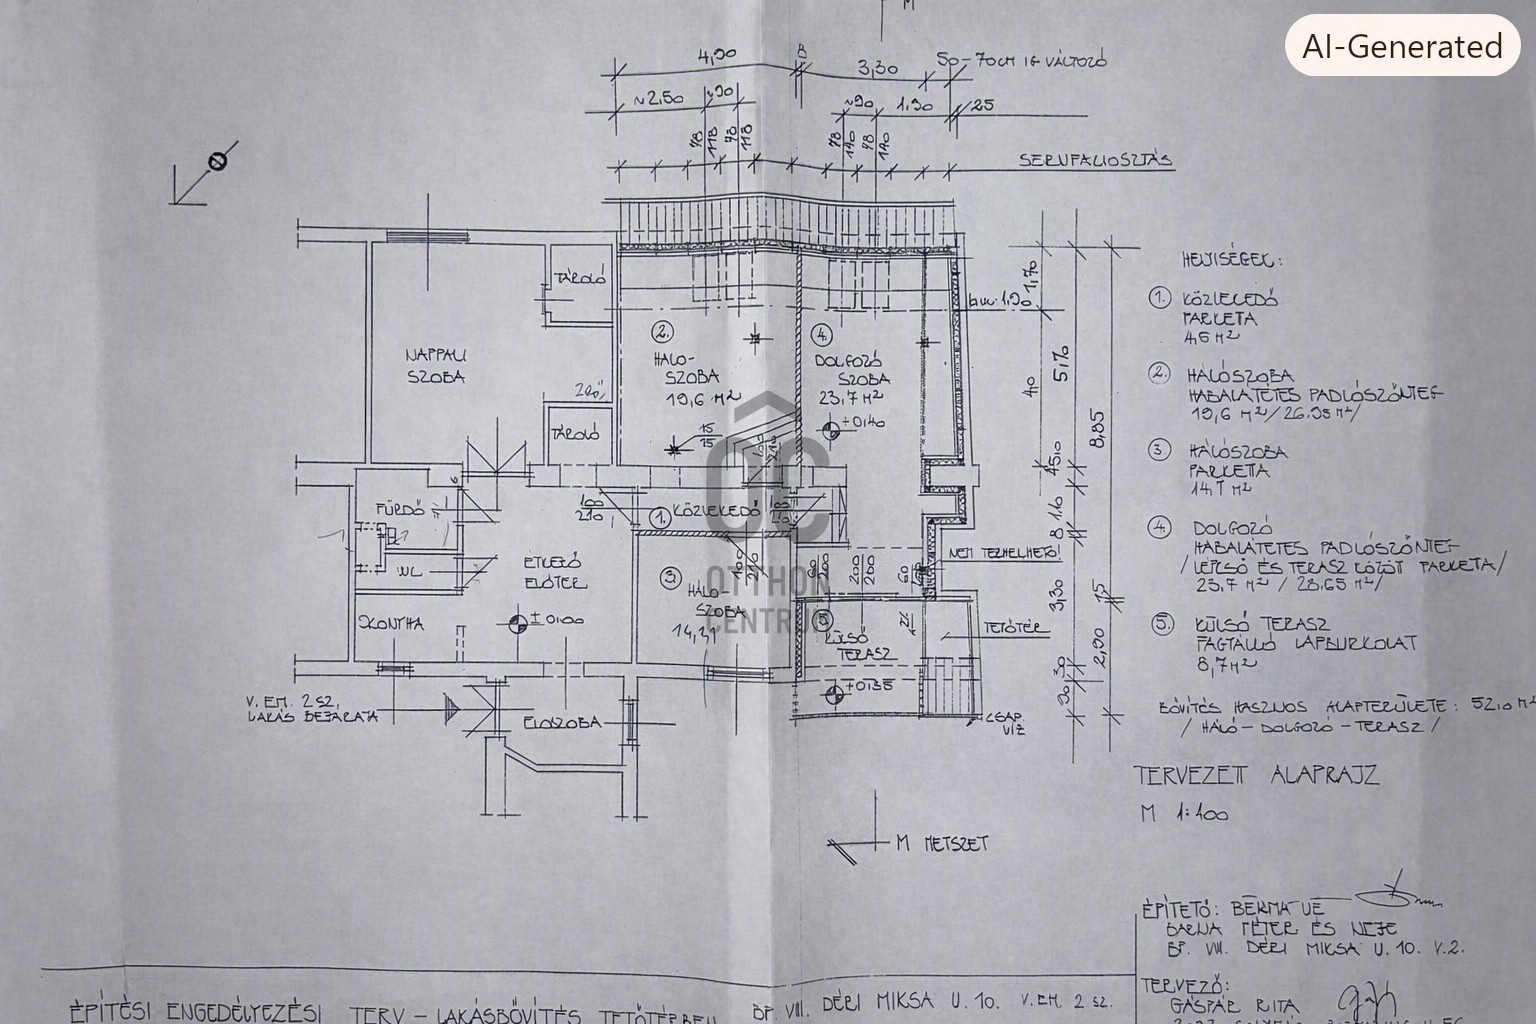 AI-Generated
M
4,90
8
3,30
50-70cm IG VÁLTOZÓ
~2,50
~90
~90
1,90
25
78
118
78
118
78
140
78
140
TÁROLÓ
NAPPALI
SZOBA
TÁROLÓ
2.
HÁLÓ-
SZOBA
19,6 M²
15
15
4.
DOLGOZÓ
SZOBA
23,7 M²
+0,40
1,70
bm. 1,90
5,76
40
8,85
3,30
2,90
FÜRDŐ
WC
KONYHA
ÉTKEZŐ
ELŐTÉR
±0,00
100
210
1.
KÖZLEKEDŐ
3.
HÁLÓ-
SZOBA
14,71
200
200
60
NEM TERHELHETŐ!
KÜLSŐ
TERASZ
+0,35
TETŐTÉR
CSAP.
VÍZ
V. EM. 2 SZ.
LAKÁS BEJÁRATA
ELŐSZOBA
M METSZET
OC
OTTHON
CENTRUM
HELYISÉGEK:
1. KÖZLEKEDŐ
PARKETTA
4,6 M²
2. HÁLÓSZOBA
HABALÁTÉTES PADLÓSZŐNYEG
19,6 M² /26.95 M²/
3. HÁLÓSZOBA
PARKETTA
14,7 M²
4. DOLGOZÓ
HABALÁTÉTES PADLÓSZŐNYEG
/LÉPCSŐ ÉS TERASZ KÖZÖTT PARKETTA/
23,7 M² / 28.65 M²/
5. KÜLSŐ TERASZ
FAGYÁLLÓ LAPBURKOLAT
8,7 M²
BŐVÍTÉS HASZNOS ALAPTERÜLETE: 52,0 M²
/ HÁLÓ - DOLGOZÓ - TERASZ /
TERVEZETT ALAPRAJZ
M 1:100
ÉPÍTETŐ:
PÉTER ÉS NEJE
BP. VIII. DÉRI MIKSA U. 10. V.2.
TERVEZŐ:
GÁSPÁR RITA
ÉPÍTÉSI ENGEDÉLYEZÉSI TERV - LAKÁSBŐVÍTÉS TETŐTÉRBEN BP. VIII. DÉRI MIKSA U. 10. V. EM. 2 SZ.